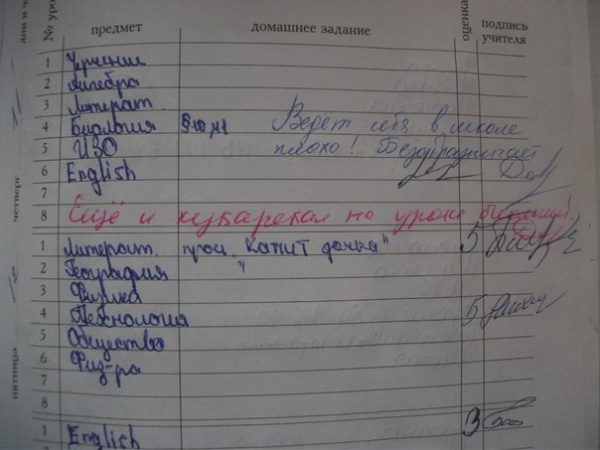 дни и ч
№ уро
предмет
домашнее задание
оценка
подпись учителя
четверг
1 Черчение
2 Алгебра
3 Литерат.
4 Биология §10 Ведёт себя в школе
5 ИЗО плохо! Безобразничает
6 English
7
8 Ещё и кукарекал на уроке биологии!
пятница
1 Литерат. проч. "Капит дочка" 5
2 География "
3 Физика
4 Технология 5
5 Общество
6 Физ-ра
7
8
1 English 3